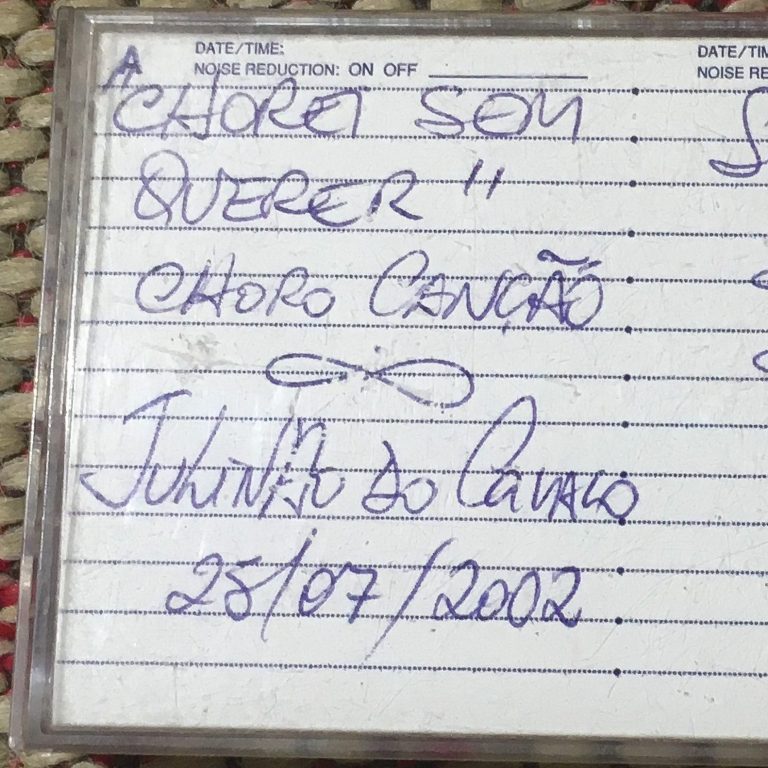 A DATE/TIME:
NOISE REDUCTION: ON OFF
CHOREI SEM
QUERER "
CHORO CANÇÃO
JULINHO DO CAVACO
25/07/2002
DATE/TIM
NOISE RE
S